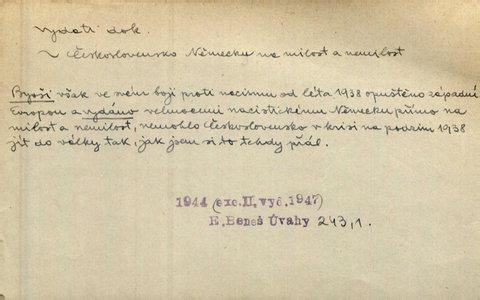 vydati dok.
~ Československo Německu na milost a nemilost
Byvši však ve svém boji proti nacismu od léta 1938 opuštěno západní
Evropou a vydáno velmocemi nacistickému Německu přímo na
milost a nemilost, nemohlo Československo v krisi na podzim 1938
jít do války tak, jak jsem si to tehdy přál.
1944 (exc. II, vyd. 1947)
E. Beneš Úvahy 243,1.